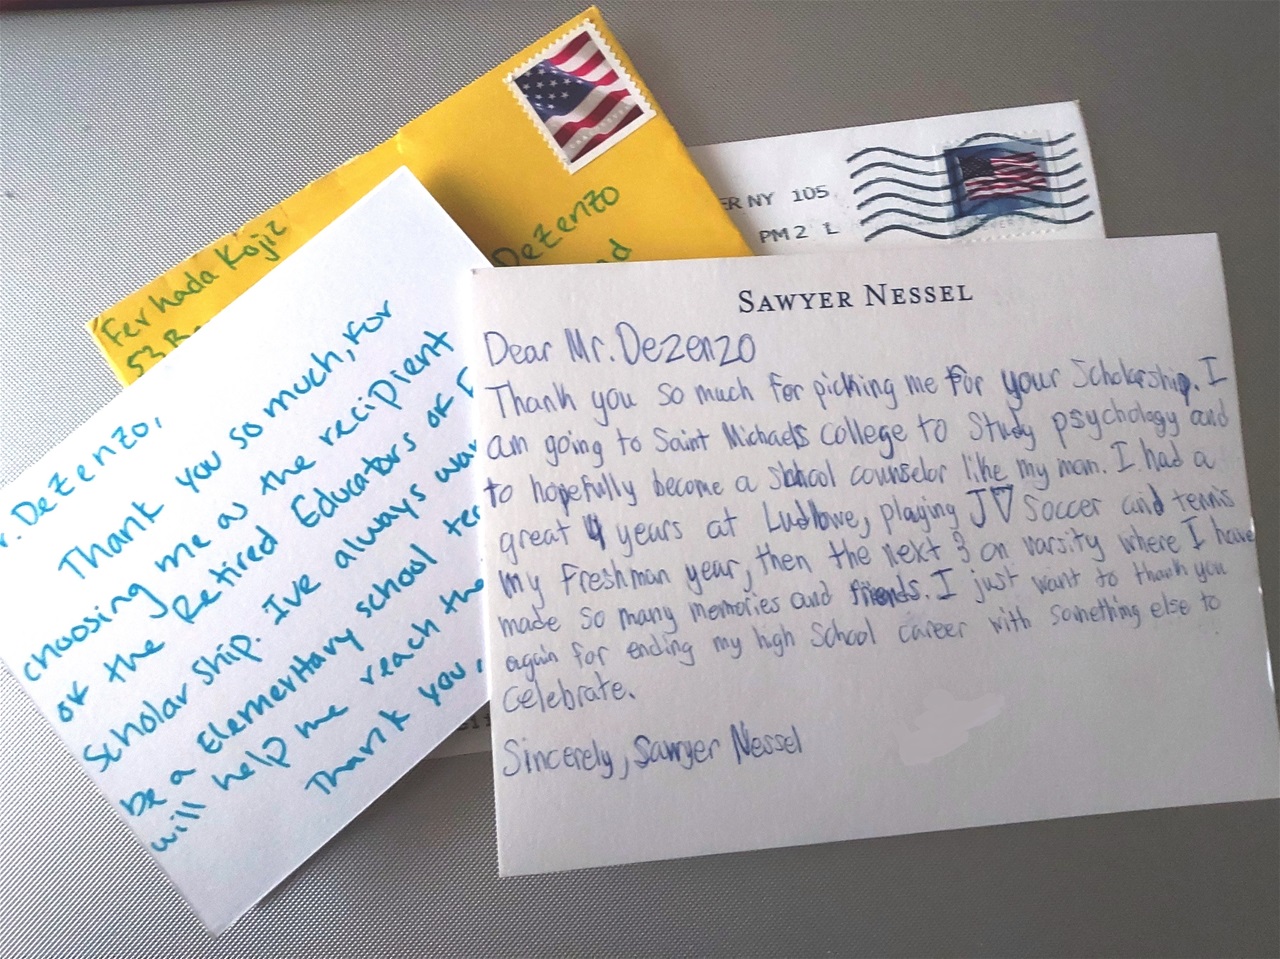 Ferhada Kojic
53
Dezenzo
ER NY 105
PM 2 L
r. Dezenzo,
Thank you so much, for
choosing me as the recipient
of the Retired Educators of
Scholarship. Ive always
be a Elementary school
will help me reach the
Thank you,
SAWYER NESSEL
Dear Mr. Dezenzo
Thank you so much for picking me for your Scholarship. I
am going to Saint Michaels college to Study psychology and
to hopefully become a school counselor like my mom. I had a
great 4 years at Ludlowe, playing JV Soccer and tennis
my freshman year, then the next 3 on varsity where I have
made so many memories and friends. I just want to thank you
again for ending my high School career with something else to
celebrate.
Sincerely, Sawyer Nessel